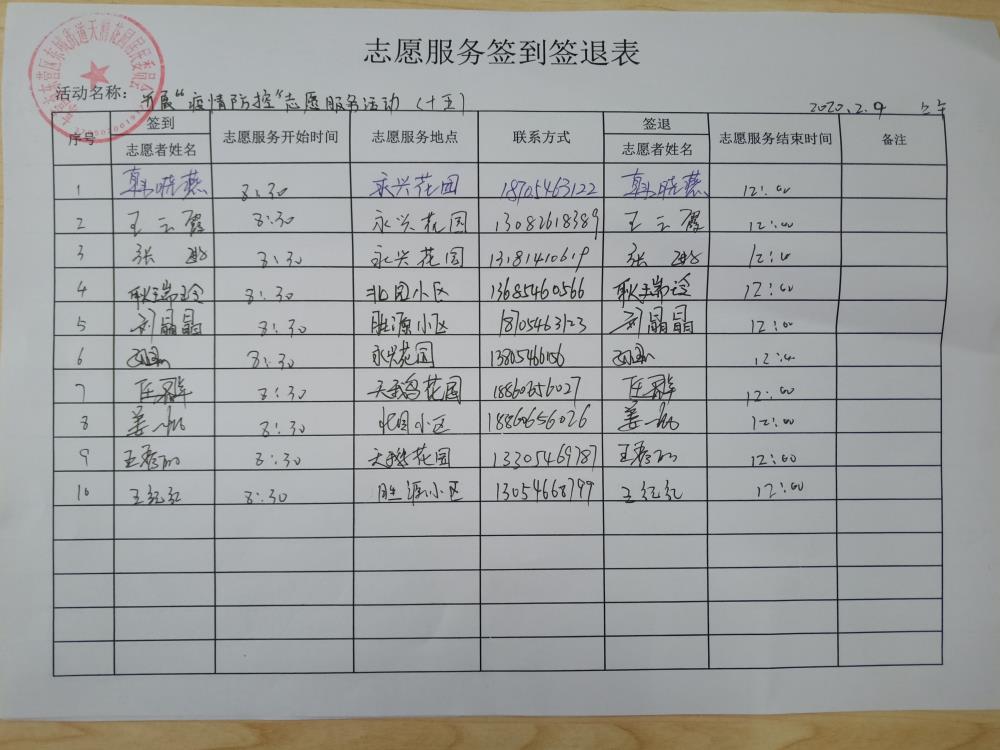 志愿服务签到签退表
活动名称： 开展“疫情防控”志愿服务活动（十五） 2020.2.9 上午
序号 签到 志愿服务开始时间 志愿服务地点 联系方式 签退 志愿服务结束时间 备注
志愿者姓名 志愿者姓名
1 韩晓燕 8:30 永兴花园 18705463122 韩晓燕 12:00
2 王云霞 8:30 永兴花园 13082618389 王云霞 12:00
3 张 8:30 永兴花园 13181410619 张 12:00
4 耿瑞玲 8:30 北园小区 13685460566 耿瑞玲 12:00
5 刘晶晶 8:30 胜源小区 18705463123 刘晶晶 12:00
6 8:30 永兴花园 13805466156 12:00
7 任 8:30 天鹅花园 18860656027 任 12:00
8 姜 8:30 北园小区 18860656026 姜 12:00
9 王 8:30 天鹅花园 13305469787 王 12:00
10 王纪红 8:30 胜源小区 13054668799 王纪红 12:00